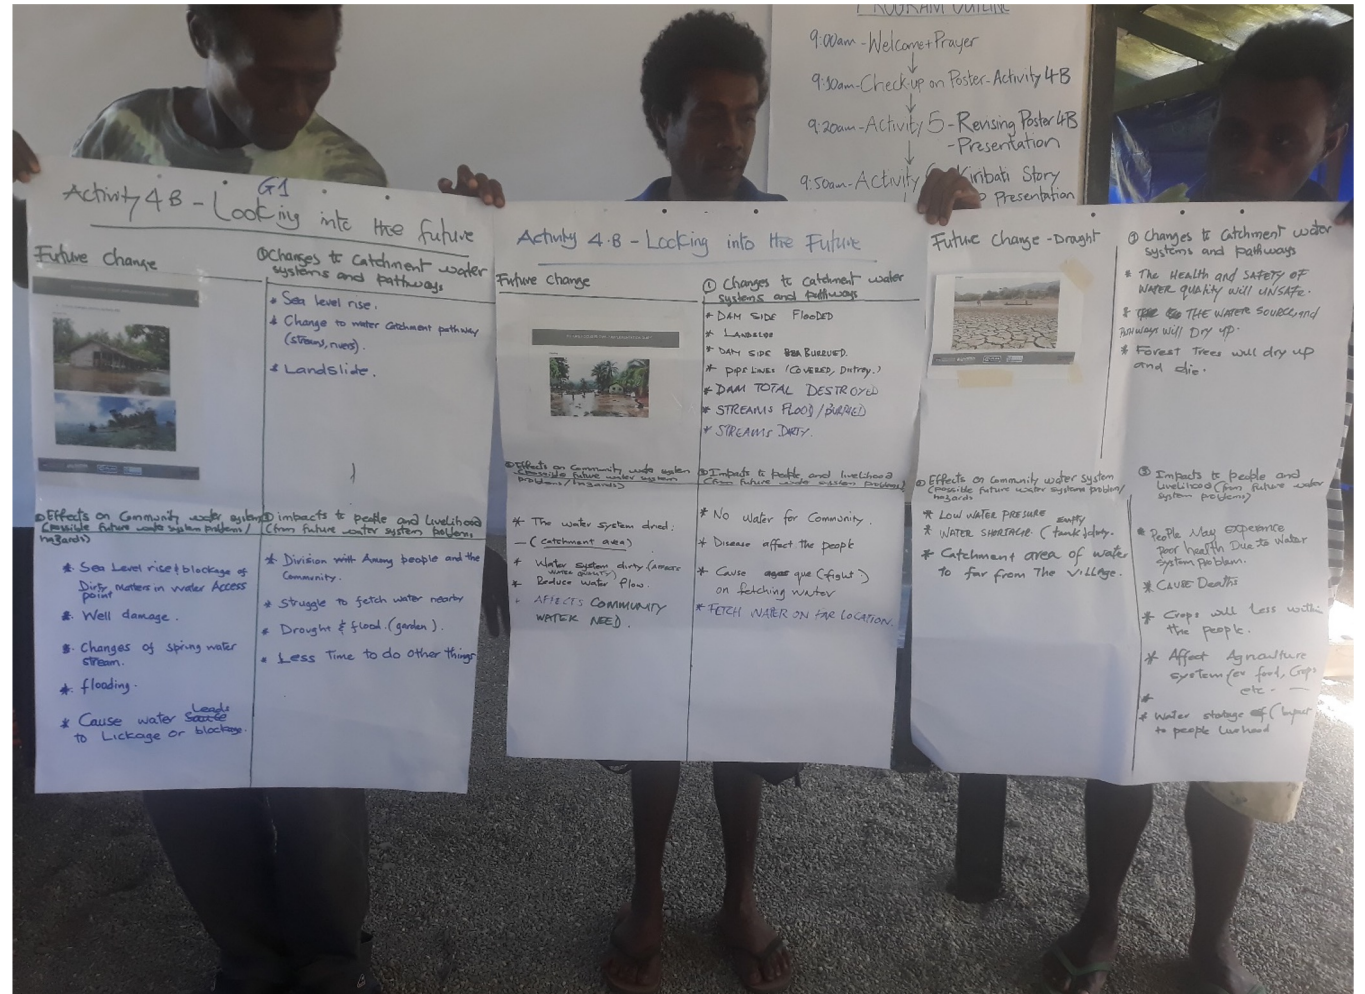 PROGRAM OUTLINE
9:00am - Welcome + Prayer
9:10am - Check up on Poster - Activity 4B
9:20am - Activity 5 - Revising Poster 4B
- Presentation
9:50am - Activity
Kiribati Story
Presentation
G1
Activity 4B - Looking into the future
Future Change
① Changes to Catchment water
systems and pathways
* Sea level rise.
* Change to water catchment pathway
(streams, rivers).
* Landslide.
② Effects on Community water system
(possible future water system problems/
hazards)
* Sea Level rise & blockage of
Dirty matters in water Access
point
* Well damage.
* Changes of spring water
stream.
* flooding.
* Cause water Leads
to Lickage or blockage.
③ impacts to people and Livelihood
(from future water system problems)
* Division with Among people and the
Community.
* Struggle to fetch water nearby
* Drought & flood (garden).
* Less Time to do other things
Activity 4.B - Looking into the Future
Future change
① Changes to Catchment water
systems and pathways
* DAM SIDE FLOODED
* DAM SIDE BURRUED.
* PIPE LINES (COVERED, Distroy.)
* DAM TOTAL DESTROYED
* STREAMS FLOOD/BURRIED
* STREAMS DIRTY.
② Effects on Community water system
(possible future water system
problems/hazards)
* The water system dried.
- (catchment area)
* Water system dirty (
WATER QUALITY)
* Reduce water flow.
* AFFECTS COMMUNITY
WATER NEED.
③ Impacts to people and livelihood
(from future water system problems)
* No Water for Community.
* Disease affect the people
* Cause que (fight)
on fetching water
* FETCH WATER ON FAR LOCATION.
Future Change - Draught
① Changes to Catchment water
systems and pathways
* THE HEALTH AND SAFETY OF
WATER QUALITY WILL UNSAFE.
* THE WATER SOURCE and
PATHWAYS WILL DRY UP.
* Forest Trees will dry up
and die.
② Effects on Community water system
(possible future water systems problem/
hazards
* LOW WATER PRESURE
* WATER SHORTAGE. (tank empty.
* Catchment area of water
to far from The village.
③ Impacts to People and
Livelihood (from future water
system problems)
* People May Experience
poor health Due to Water
System Problem.
* CAUSE Deaths
* Crops will Less within
the people.
* Affect Agriculture
system (ex food, Crops
etc. —
*
* Water storage of (
to people